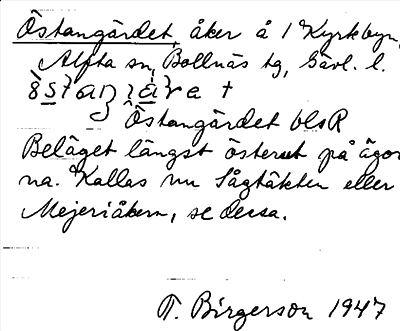 Östangärdet, åker å 1 Kyrkbyn,
Alfta sn, Bollnäs tg, Gävl. l.
Östangärdet blsR
Beläget längst österut på ägor
na. Kallas nu Sågtäkten eller
Mejeriåkern, se dessa.
T. Birgerson 1947